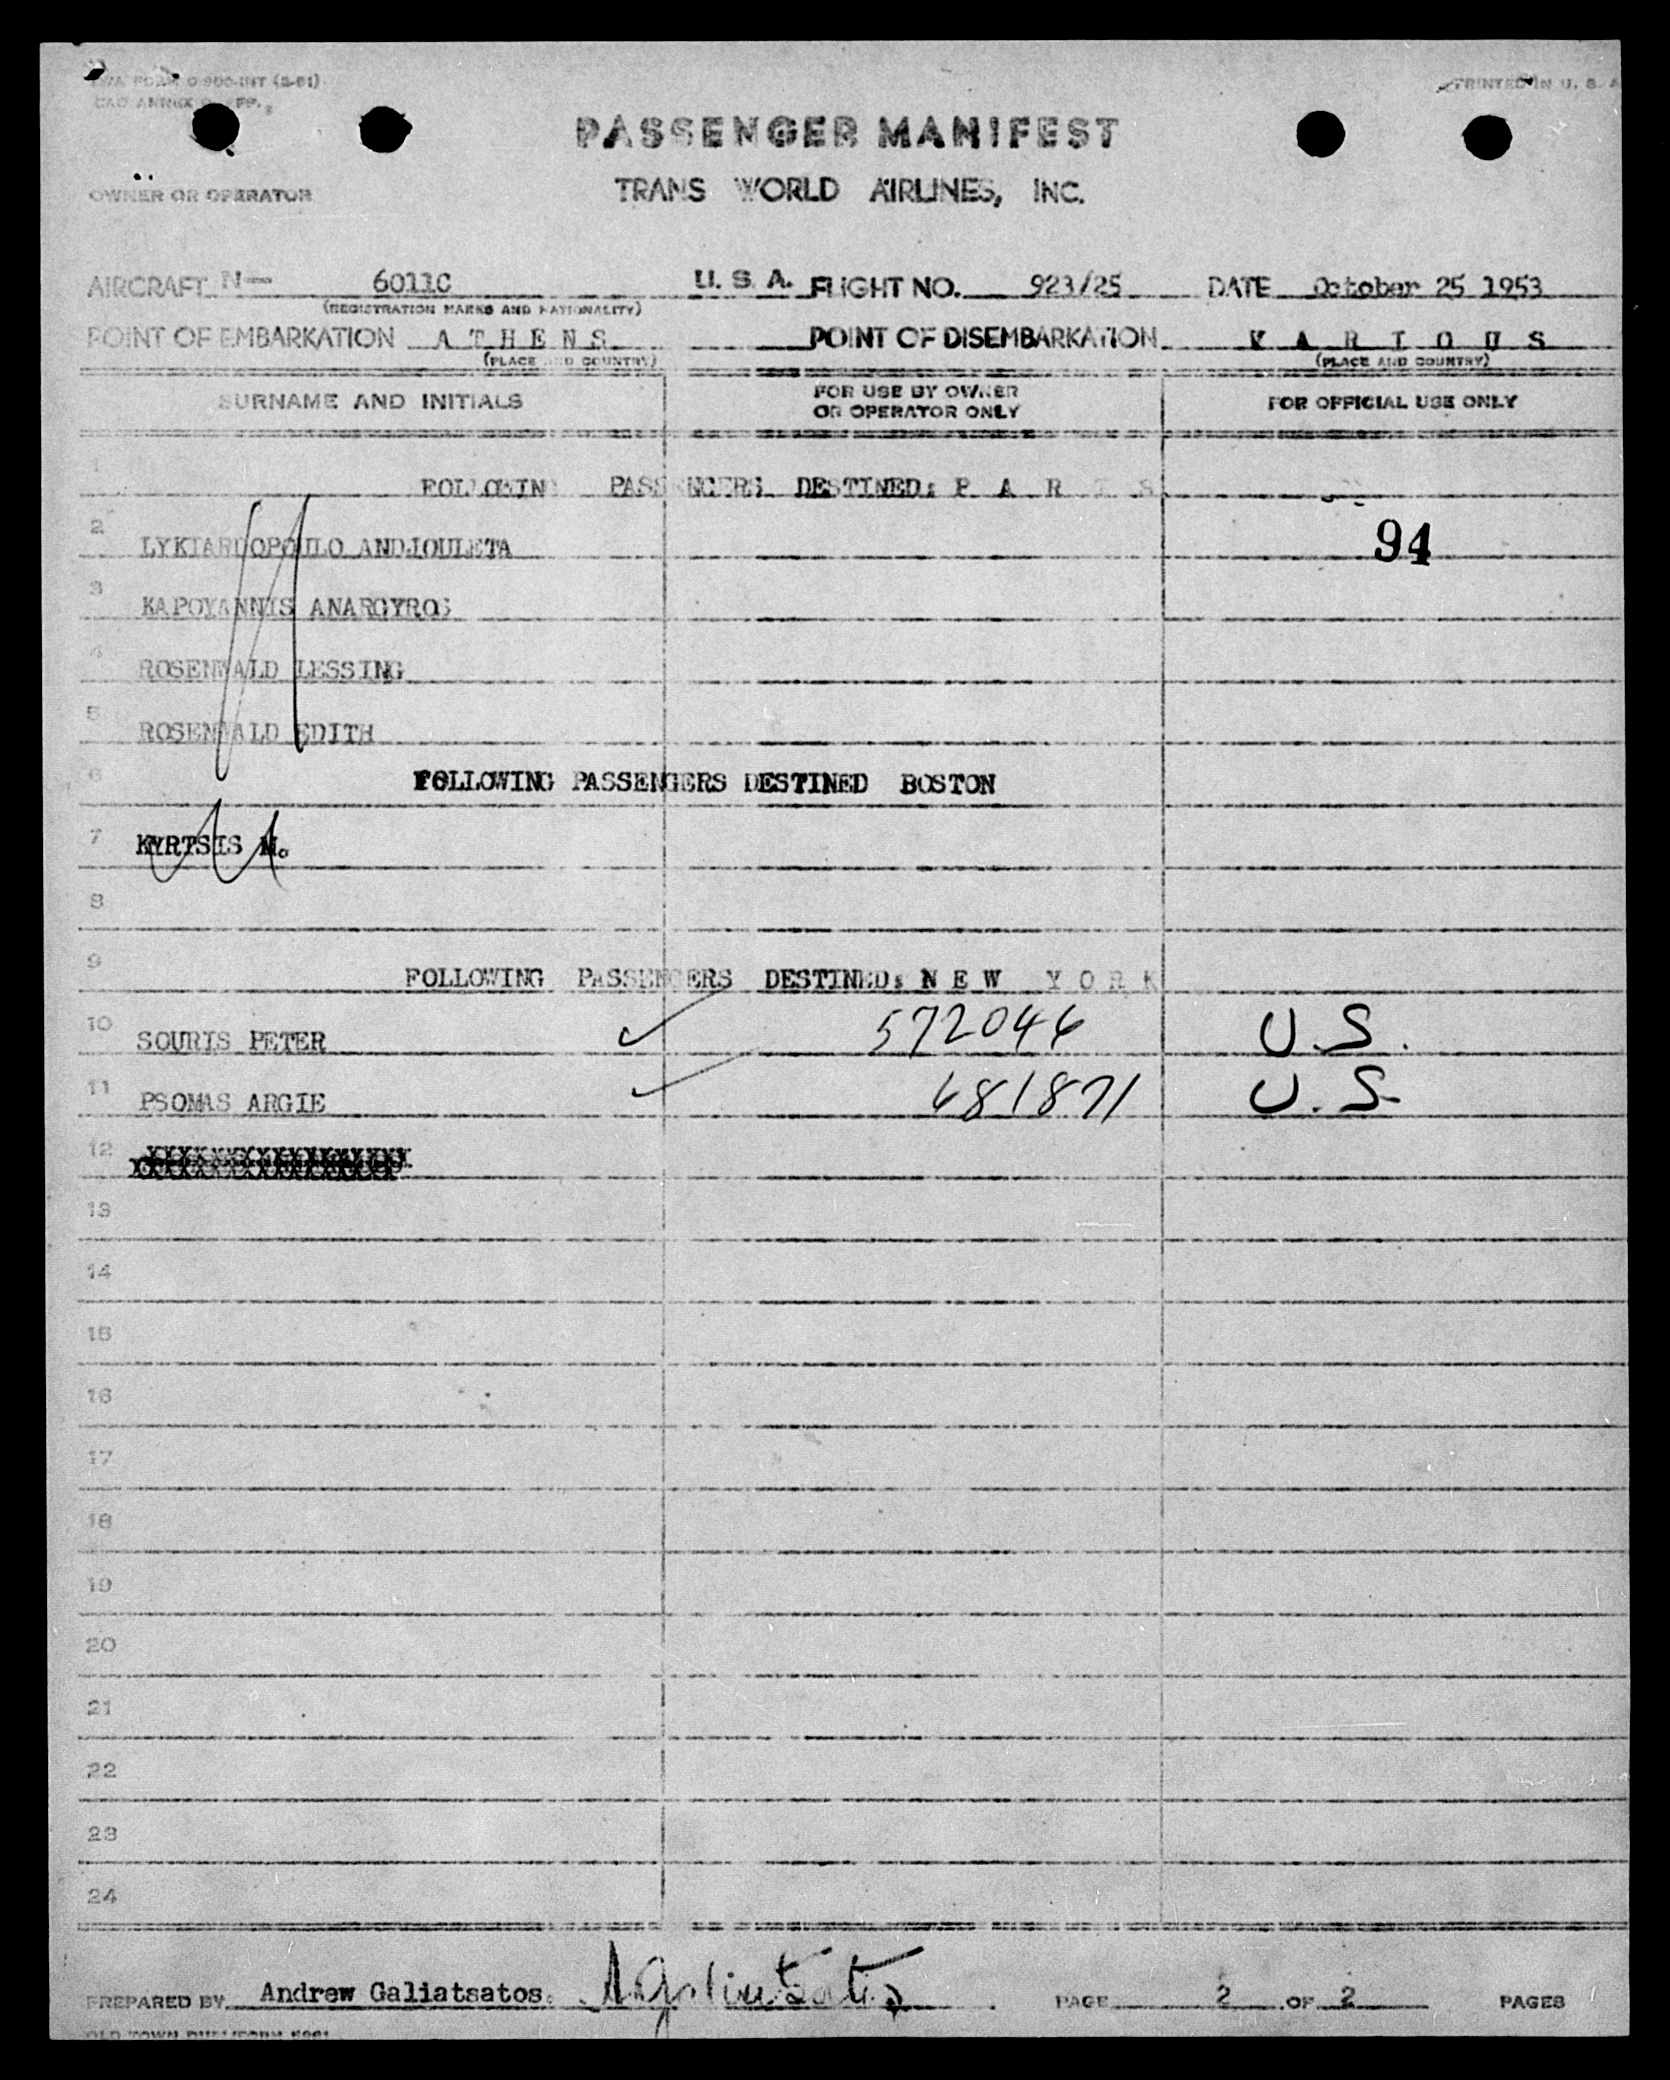 TWA FORM O-900-INT (2-51)
PRINTED IN U. S. A
PASSENGER MANIFEST
OWNER OR OPERATOR
TRANS WORLD AIRLINES, INC.
AIRCRAFT N— 6011C U. S. A. FLIGHT NO. 923/25 DATE October 25 1953
(REGISTRATION MARKS AND NATIONALITY)
POINT OF EMBARKATION A T H E N S POINT OF DISEMBARKATION V A R I O U S
(PLACE AND COUNTRY) (PLACE AND COUNTRY)
SURNAME AND INITIALS FOR USE BY OWNER OR OPERATOR ONLY FOR OFFICIAL USE ONLY
1 FOLLOWING PASSENGERS DESTINED: P A R I S
2 LYKIARDOPOULO ANDJOULETA 94
3 KAPOYANNIS ANARGYROS
4 ROSENWALD LESSING
5 ROSENWALD EDITH
6 FOLLOWING PASSENGERS DESTINED BOSTON
7 KYRTSIS M.
8
9 FOLLOWING PASSENGERS DESTINED: N E W Y O R K
10 SOURIS PETER ✓ 572046 U.S.
11 PSOMAS ARGIE ✓ 681871 U.S.
12
13
14
15
16
17
18
19
20
21
22
23
24
PREPARED BY Andrew Galiatsatos. AGaliatsatos PAGE 2 OF 2 PAGES